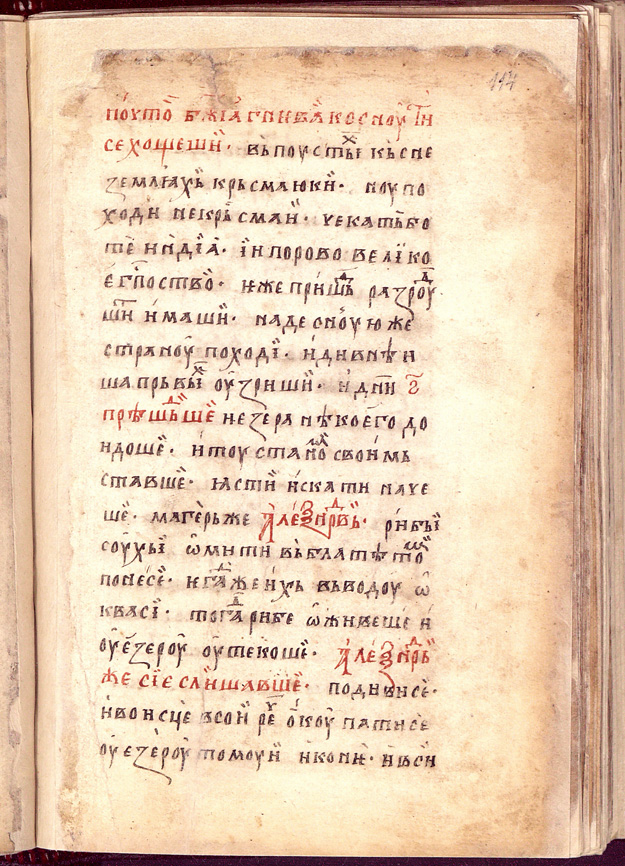 114
поуто бж҃їа гнива косноути
се хощеши· въ поустыⷯ късне
землꙗхь крьсмаюки· ноу по
ходи некрьсман· чека тѣбо
те индїа· ін порово велїко
е гп҃оство· иже пришⷣь разроуⷣ
шити имаши· надеснꙋю же
страноу походї· и дивнѣи
ша прьвыⷯ оузриши· и дн҃и г҃
прѣшьⷣше не зера нѣкоего до
идоше· и тоу станоⷨ своимь
ставше· ꙗсти искати наче
ше· магерьже алеѯнⷣрвь· рибы
соухы ѡмити въ блатѣ тоⷨ
понесе· и егⷣа же ихь въ водоу ѡ
кваси· тогⷣа рибе ѡживеше и
оу езероу оутекоше· алеѯнⷣрь
же сїе слишавше· подивисе·
и воисце всои реⷱ окоупатисе
оу езероу томоуи и кони· и вси